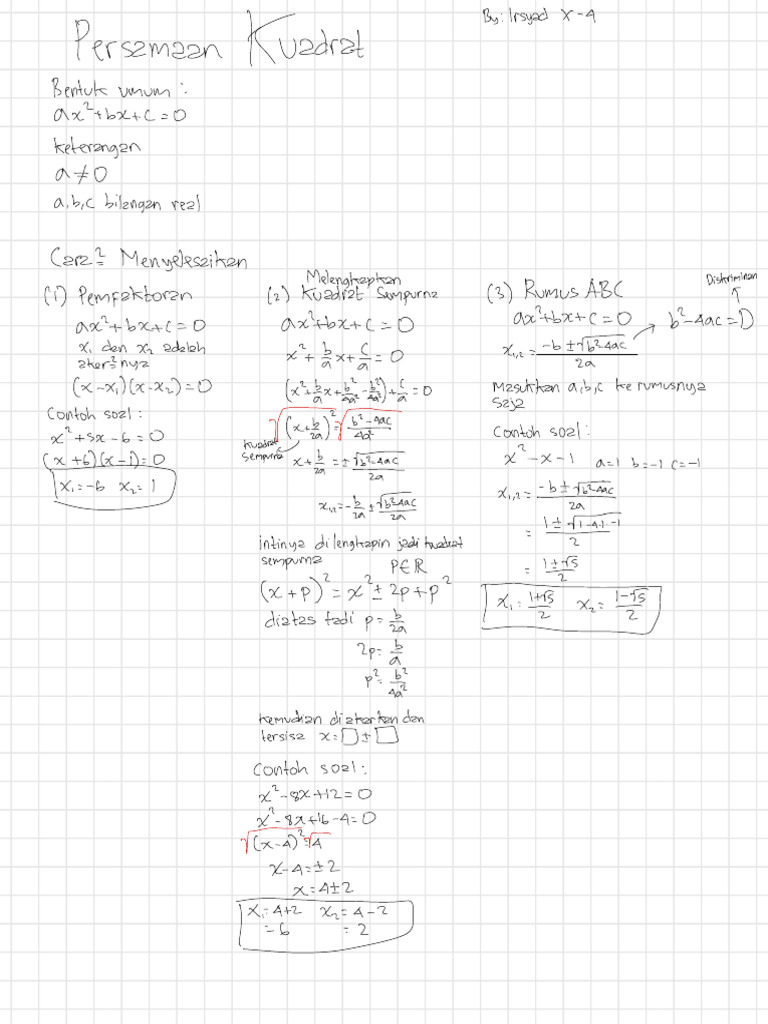 By: Irsyad X-4
Persamaan Kuadrat
Bentuk umum :
ax²+bx+c=0
keterangan
a≠0
a,b,c bilangan real
Cara² Menyelesaikan
(1) Pemfaktoran
ax²+bx+c=0
x₁ dan x₂ adalah
akar²nya
(x-x₁)(x-x₂)=0
Contoh soal:
x²+5x-6=0
(x+6)(x-1)=0
x₁=-6 x₂=1
Melengkapkan
(2) Kuadrat Sempurna
ax²+bx+c=0
x²+b/a x+c/a=0
(x²+b/a x+b²/4a²-b²/4a²)+c/a=0
√(x+b/2a)²=√b²-4ac/4a²
Kuadrat
sempurna
x+b/2a=±√b²-4ac/2a
x₁,₂=-b/2a±√b²-4ac/2a
intinya dilengkapin jadi kuadrat
sempurna P∈R
(x+p)²=x²±2p+p²
diatas tadi p=b/2a
2p=b/a
p²=b²/4a²
kemudian diakarkan dan
tersisa x=□±□
Contoh soal:
x²-8x+12=0
x²-8x+16-4=0
√(x-4)²=√4
x-4=±2
x=4±2
x₁=4+2 x₂=4-2
=6 =2
(3) Rumus ABC
Diskriminan
ax²+bx+c=0
b²-4ac=D
x₁,₂=-b±√b²-4ac/2a
Masukkan a,b,c ke rumusnya
saja
Contoh soal:
x²-x-1 a=1 b=-1 c=-1
x₁,₂=-b±√b²-4ac/2a
=1±√1-4·1·-1/2
=1±√5/2
x₁=1+√5/2 x₂=1-√5/2